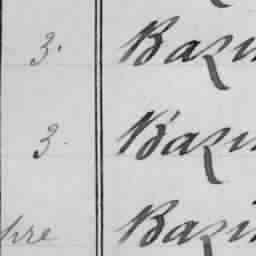 3. Bazi
3 Bazi
bre Bazi